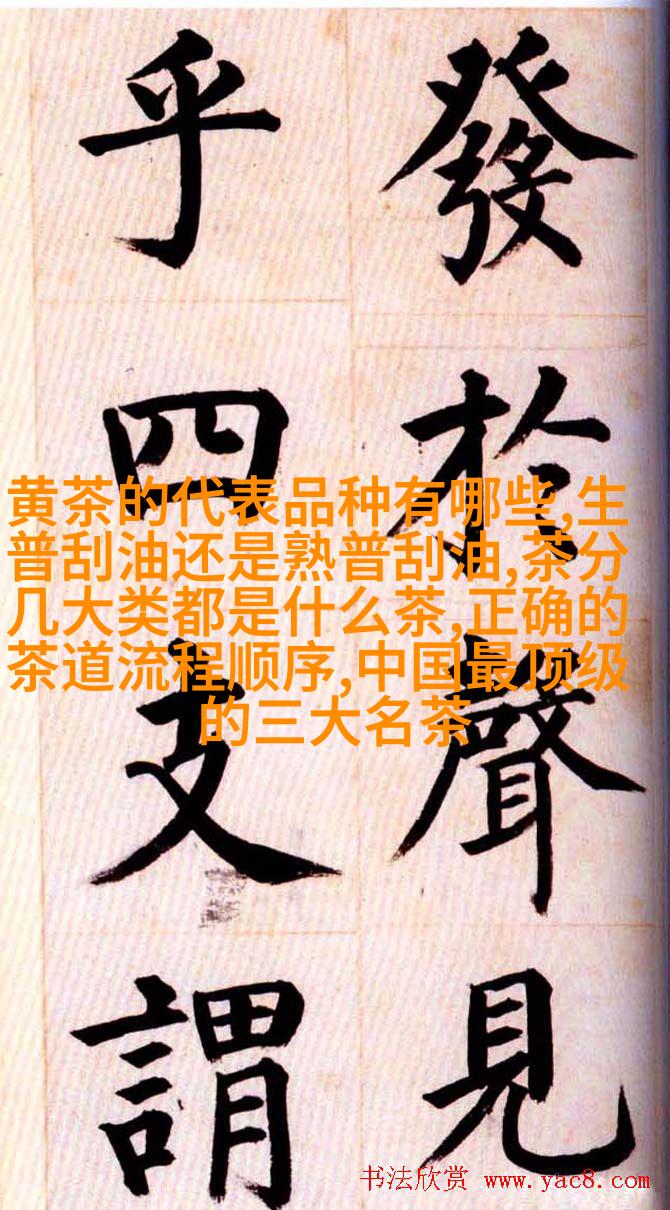 發於聲見
乎四支謂
黄茶的代表品种有哪些,生
普刮油还是熟普刮油,茶分
几大类都是什么茶,正确的
茶道流程顺序,中国最顶级
的三大名茶
书法欣赏 www.yac8.com